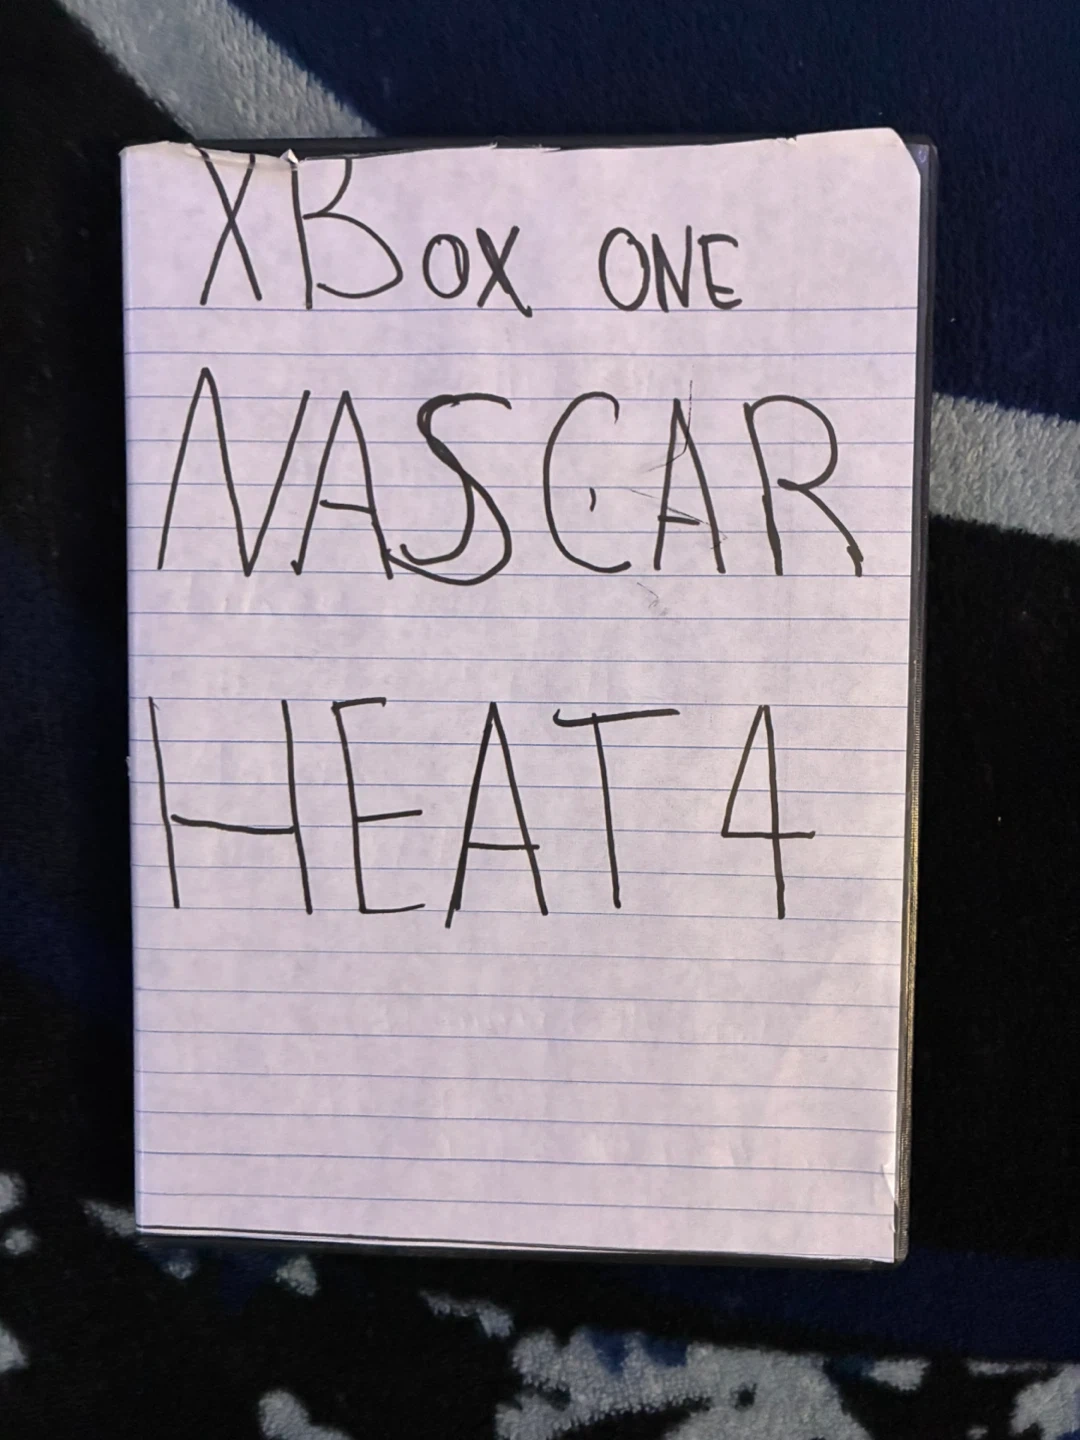 XBOX ONE
NASCAR
HEAT 4